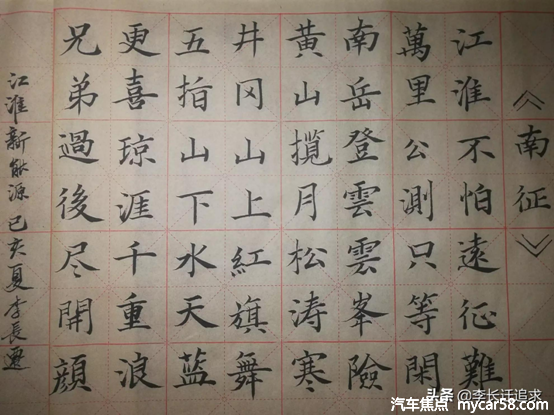 《南征》
江淮不怕遠征難
萬里公測只等閑
南岳登雲雲峯險
黃山攬月松涛寒
井冈山上紅旗舞
五指山下水天藍
更喜琼涯千重浪
兄弟過後尽開顔
江淮新能源 己亥夏李長遷
头条 @李长迁追求
汽车焦点 mycar58.com